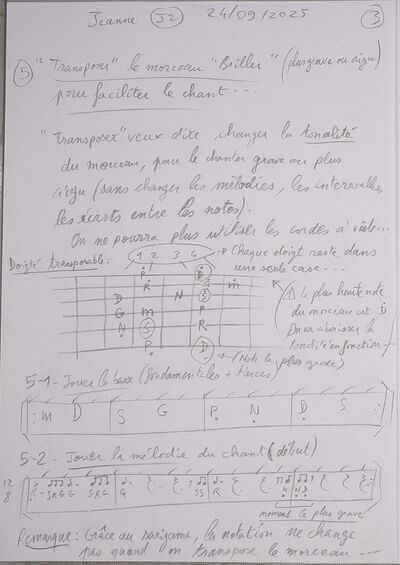 Jeanne J2 24/09/2025 3
5 "Transposer" le morceau "Briller" (plus grave ou aigu)
pour faciliter le chant...
"Transposer" veux dire, changer la tonalité
du morceau, pour le chanter grave ou plus
aigu (sans changer les mélodies, les intervalles,
les écarts entre les notes).
On ne pourra plus utiliser les cordes à vide...
Doigté transposable: 1 2 3 4 → Chaque doigt reste dans
une seule case...
P D
R m
D N S
G m P
N S R
P D
⚠ le plus haute note
du morceau est D
On va abaisser la
tonalité en fonction...
(Note la plus grave)
5-1- Jouer la basse (fondamentales + tierces)
m D S G P N D S
5-2- Jouer la mélodie du chant (début)
12
8
SRGG SRG G SS R N N N
moment le plus grave
Remarque: Grâce au sargama, la notation ne change
pas quand on transpose le morceau...